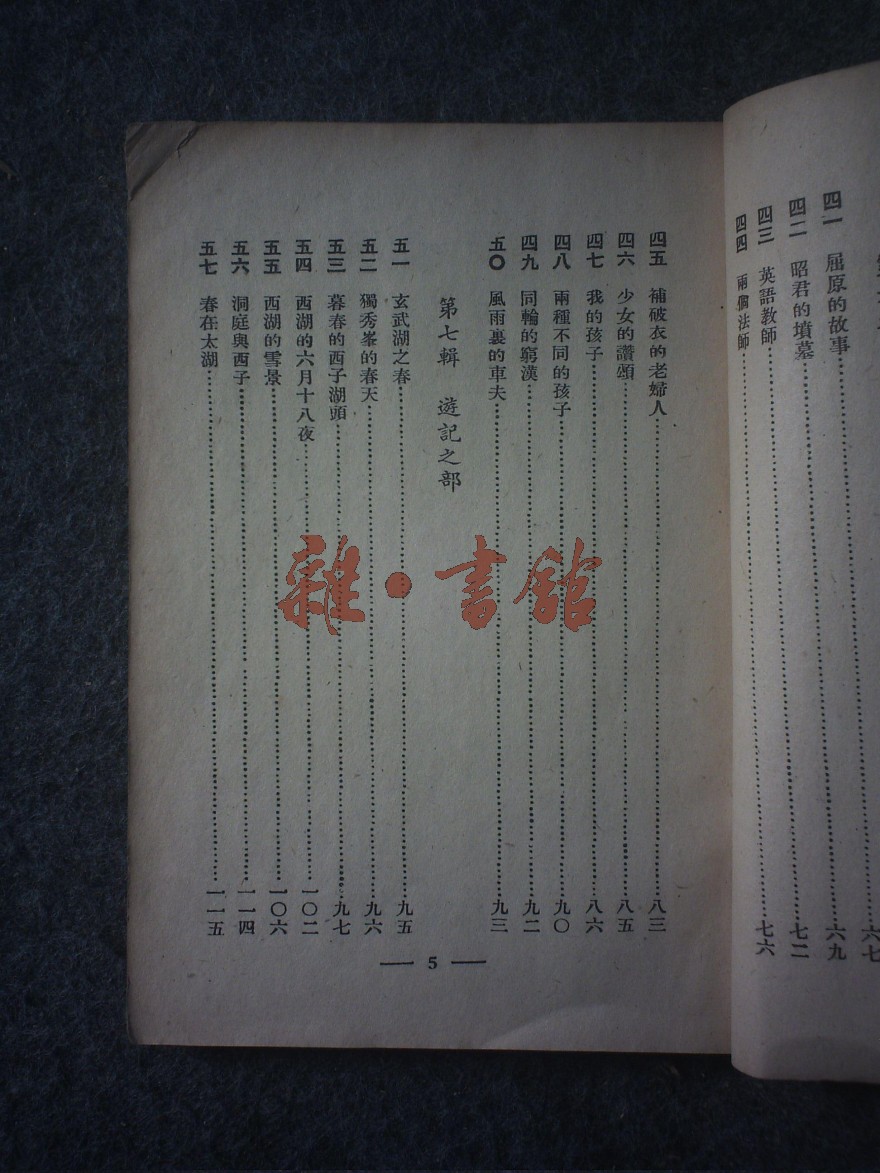 六七
四一 屈原的故事 六九
四二 昭君的墳墓 七二
四三 英語教師 七六
四四 兩個法師
四五 補破衣的老婦人 八三
四六 少女的讚頌 八五
四七 我的孩子 八六
四八 兩種不同的孩子 九〇
四九 同輪的窮漢 九二
五〇 風雨裏的車夫 九三
第七輯 遊記之部
五一 玄武湖之春 九五
五二 獨秀峯的春天 九六
五三 暮春的西子湖頭 九七
五四 西湖的六月十八夜 一〇二
五五 西湖的雪景 一〇六
五六 洞庭與西子 一一四
五七 春在太湖 一一五
— 5 —
雜·書館